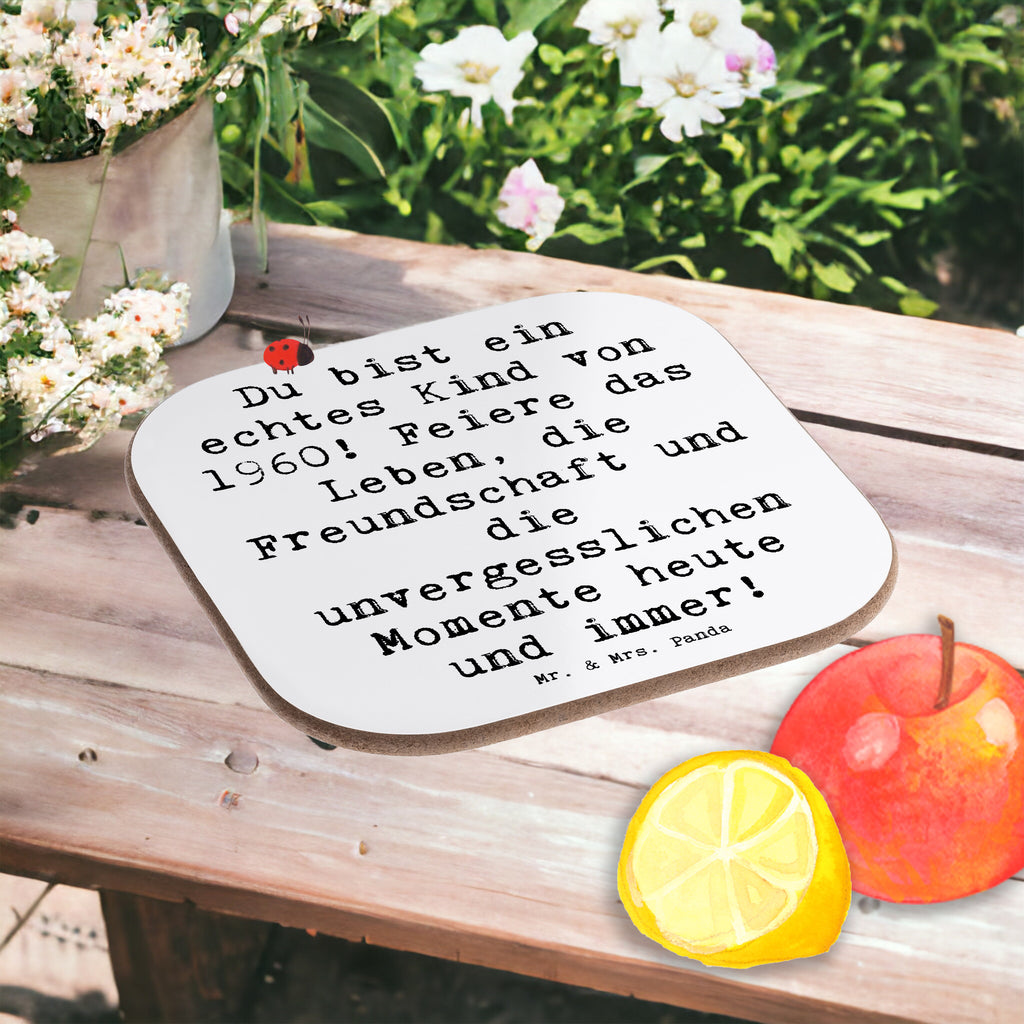 Du bist ein
echtes Kind von
1960! Feiere das
Leben, die
Freundschaft und
die
unvergesslichen
Momente heute
und immer!
Mr. & Mrs. Panda